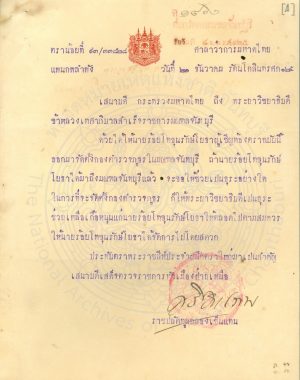 [A]
ตราน้อยที่ ๔๓/๓๓๕๘๘ ศาลาว่าการมหาดไทย
แผนกพลำภัง วันที่ ๒๑ ธันวาคม รัตนโกสินทรศก ๑๒๕
เสนาบดี กระทรวงมหาดไทย ถึง พระยาวิชยาธิบดี
ข้าหลวงเทศาภิบาลสำเร็จราชการมณฑลจันทบุรี
ด้วยได้ให้นายร้อยโทขุนรักษ์โยธาผู้เชิญท้องตราฉบับนี้
ออกมาจัดตั้งกองตำรวจภูธรในมณฑลจันทบุรี ถ้านายร้อยโทขุนรักษ์
โยธาได้มาถึงมณฑลจันทบุรีแล้ว จะขอให้ช่วยเปนธุระอย่างใด
ในการที่จะจัดตั้งกองตำรวจภูธร ก็ให้พระยาวิชยาธิบดีเปนธุระ
ช่วยเหลือเกื้อหนุนแก่นายร้อยโทขุนรักษ์โยธาให้ตลอดไปตามสมควร
ให้นายร้อยโทขุนรักษ์โยธาได้จัดการไปโดยสดวก
ประทับตราพระราชสีห์ประจำผนึกตราใหญ่มาเปนสำคัญ
ราชปลัดทูลฉลองเซ็นแทน